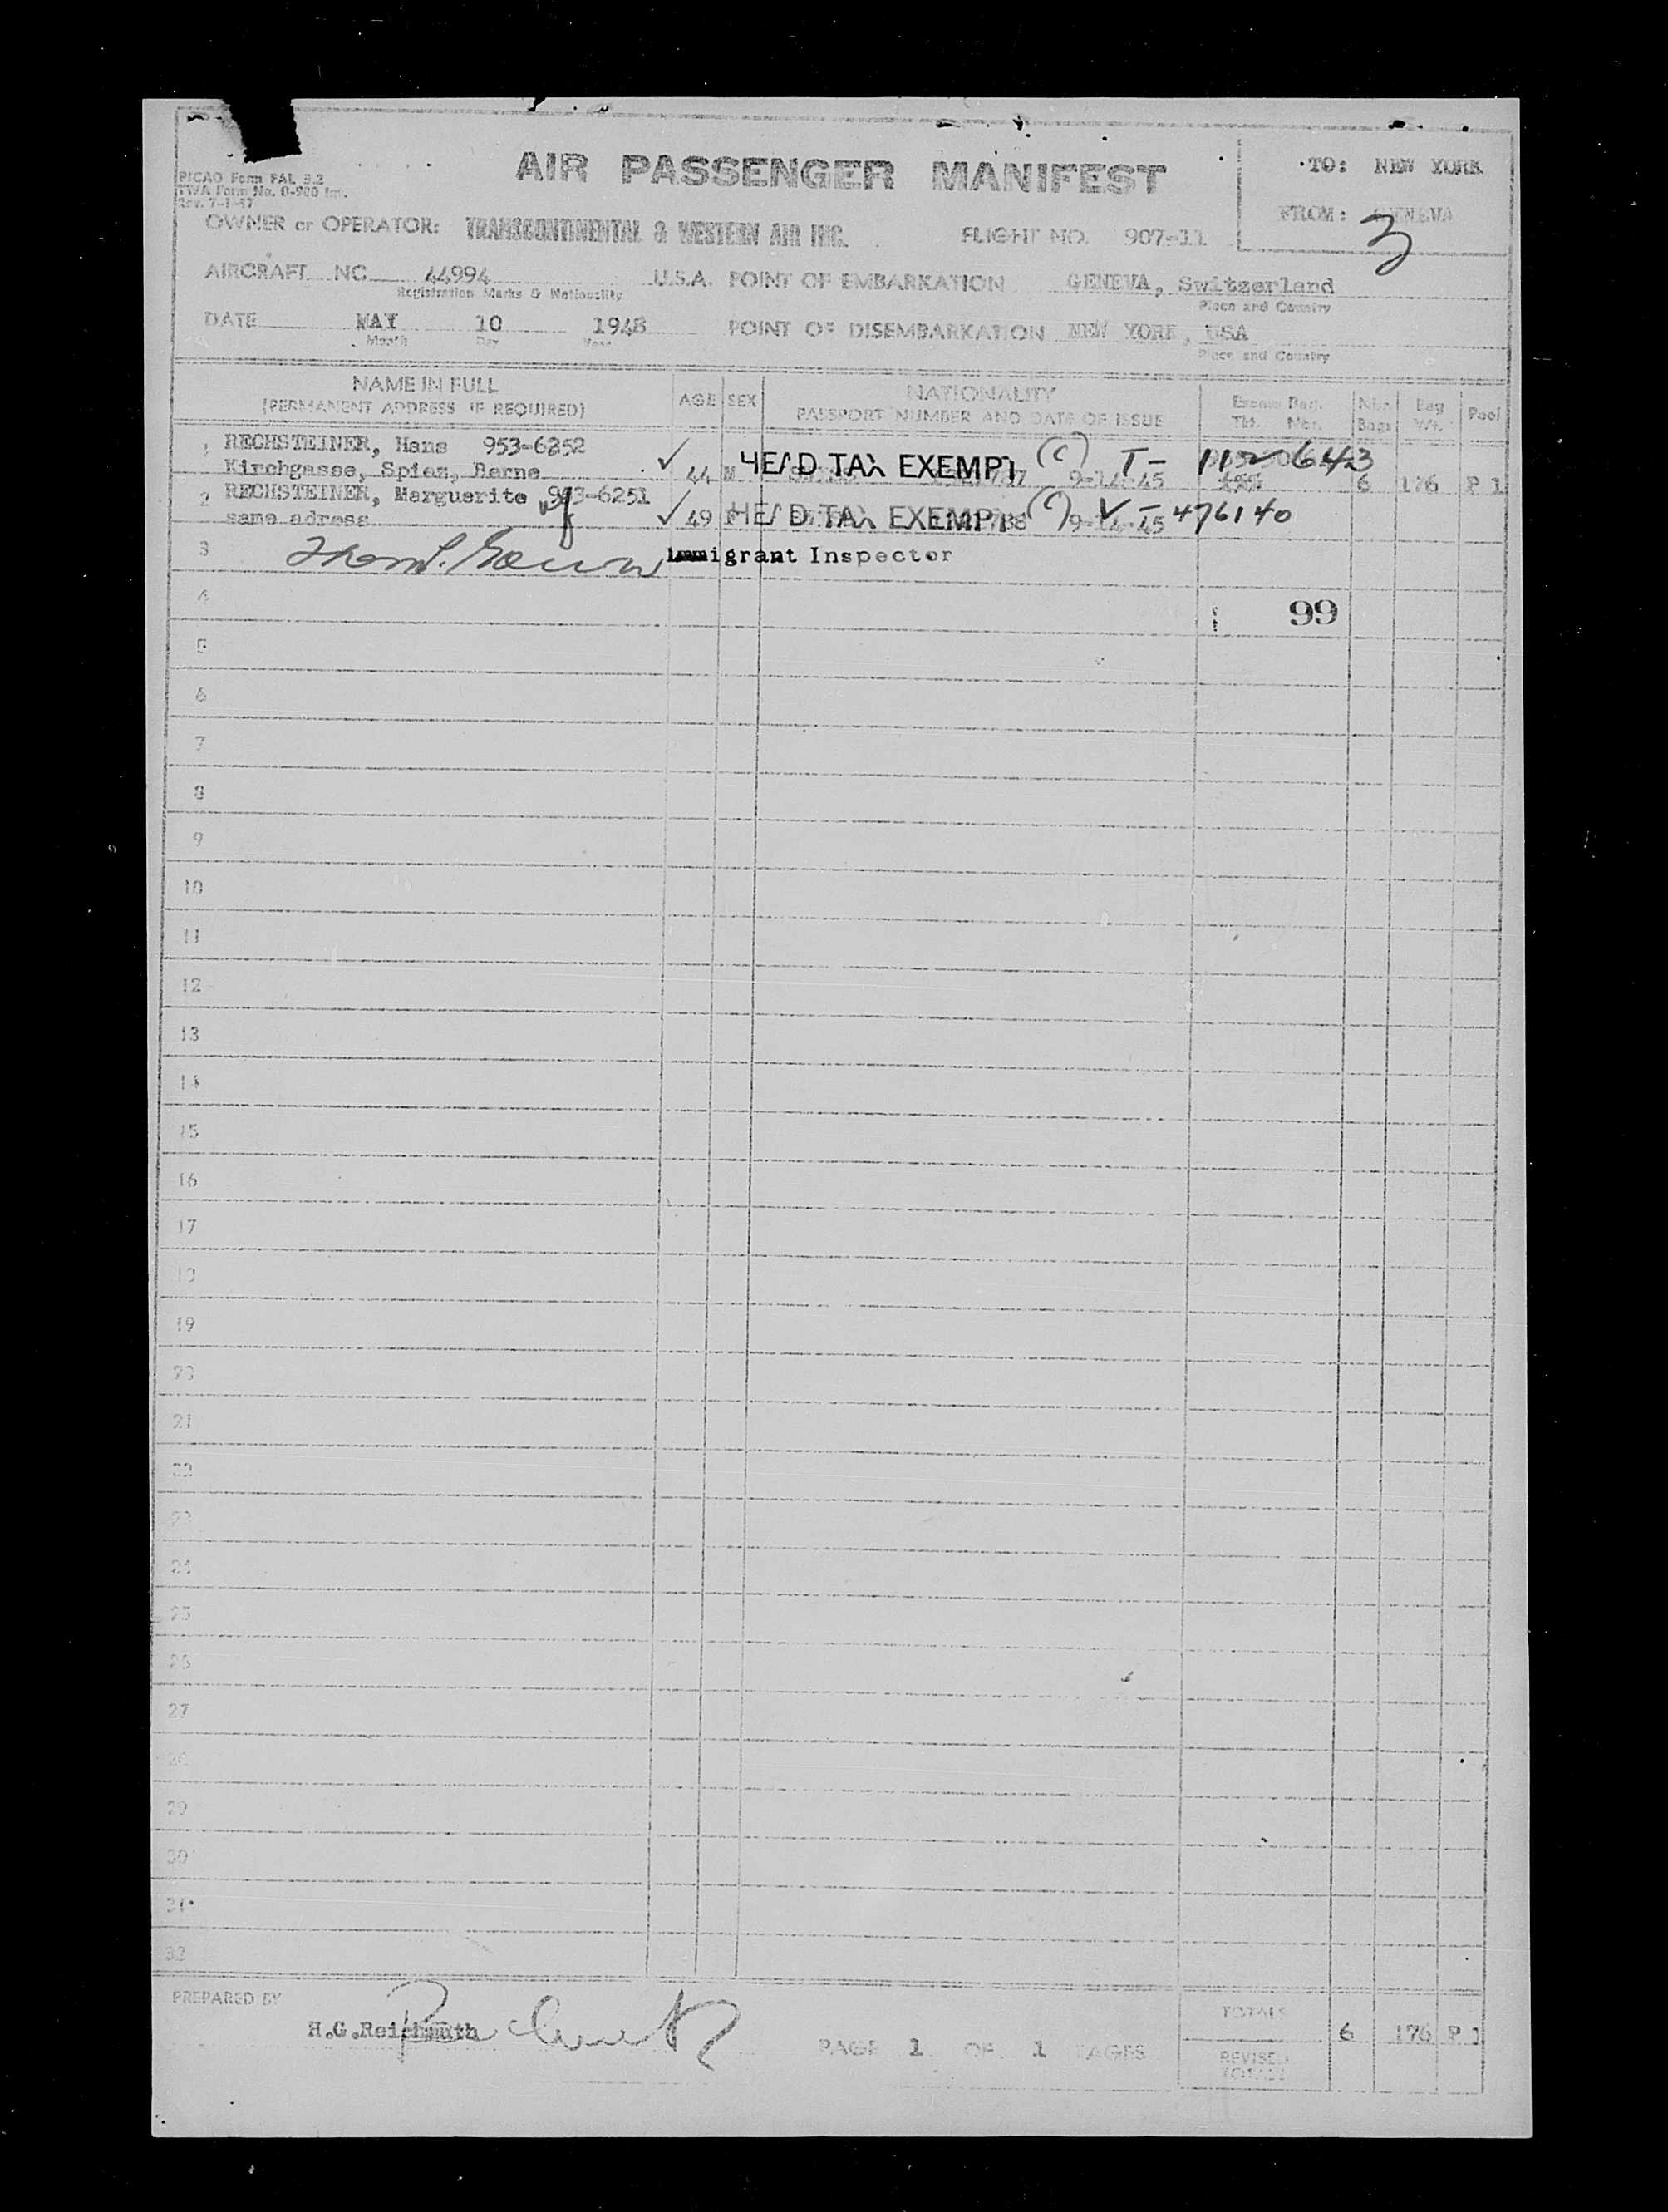 AIR PASSENGER MANIFEST
TO: NEW YORK
PICAO Form FAL 3.2
TWA Form No. 0-980 Int.
Rev. 7-1-47
FROM: GENEVA
3
OWNER or OPERATOR: TRANSCONTINENTAL & WESTERN AIR INC. FLIGHT NO. 907-11
AIRCRAFT NC 44994 U.S.A. POINT OF EMBARKATION GENEVA, Switzerland
Registration Marks & Nationality Place and Country
DATE MAY 10 1948 POINT OF DISEMBARKATION NEW YORK, USA
Month Day Year Place and Country
NAME IN FULL AGE SEX NATIONALITY Excess Bag. Nbr. Bag Pool
(PERMANENT ADDRESS IF REQUIRED) PASSPORT NUMBER AND DATE OF ISSUE Tkt. Nbr. Bags Wt.
1 RECHSTEINER, Hans 953-6252
Kirchgasse, Spiez, Berne 44 M HEAD TAX EXEMPT (C) 9-14-45 T- 643 6 176 P 1
2 RECHSTEINER, Marguerite 953-6251
same adress 49 F HEAD TAX EXEMPT (C) 9-14-45 V-476140
3 Immigrant Inspector
4 99
5
6
7
8
9
10
11
12
13
14
15
16
17
18
19
20
21
22
23
24
25
26
27
28
29
30
31
32
PREPARED BY
H.G.Reichmuth
PAGE 1 OF 1 PAGES
TOTALS 6 176 P 1
REVISED
TOTALS